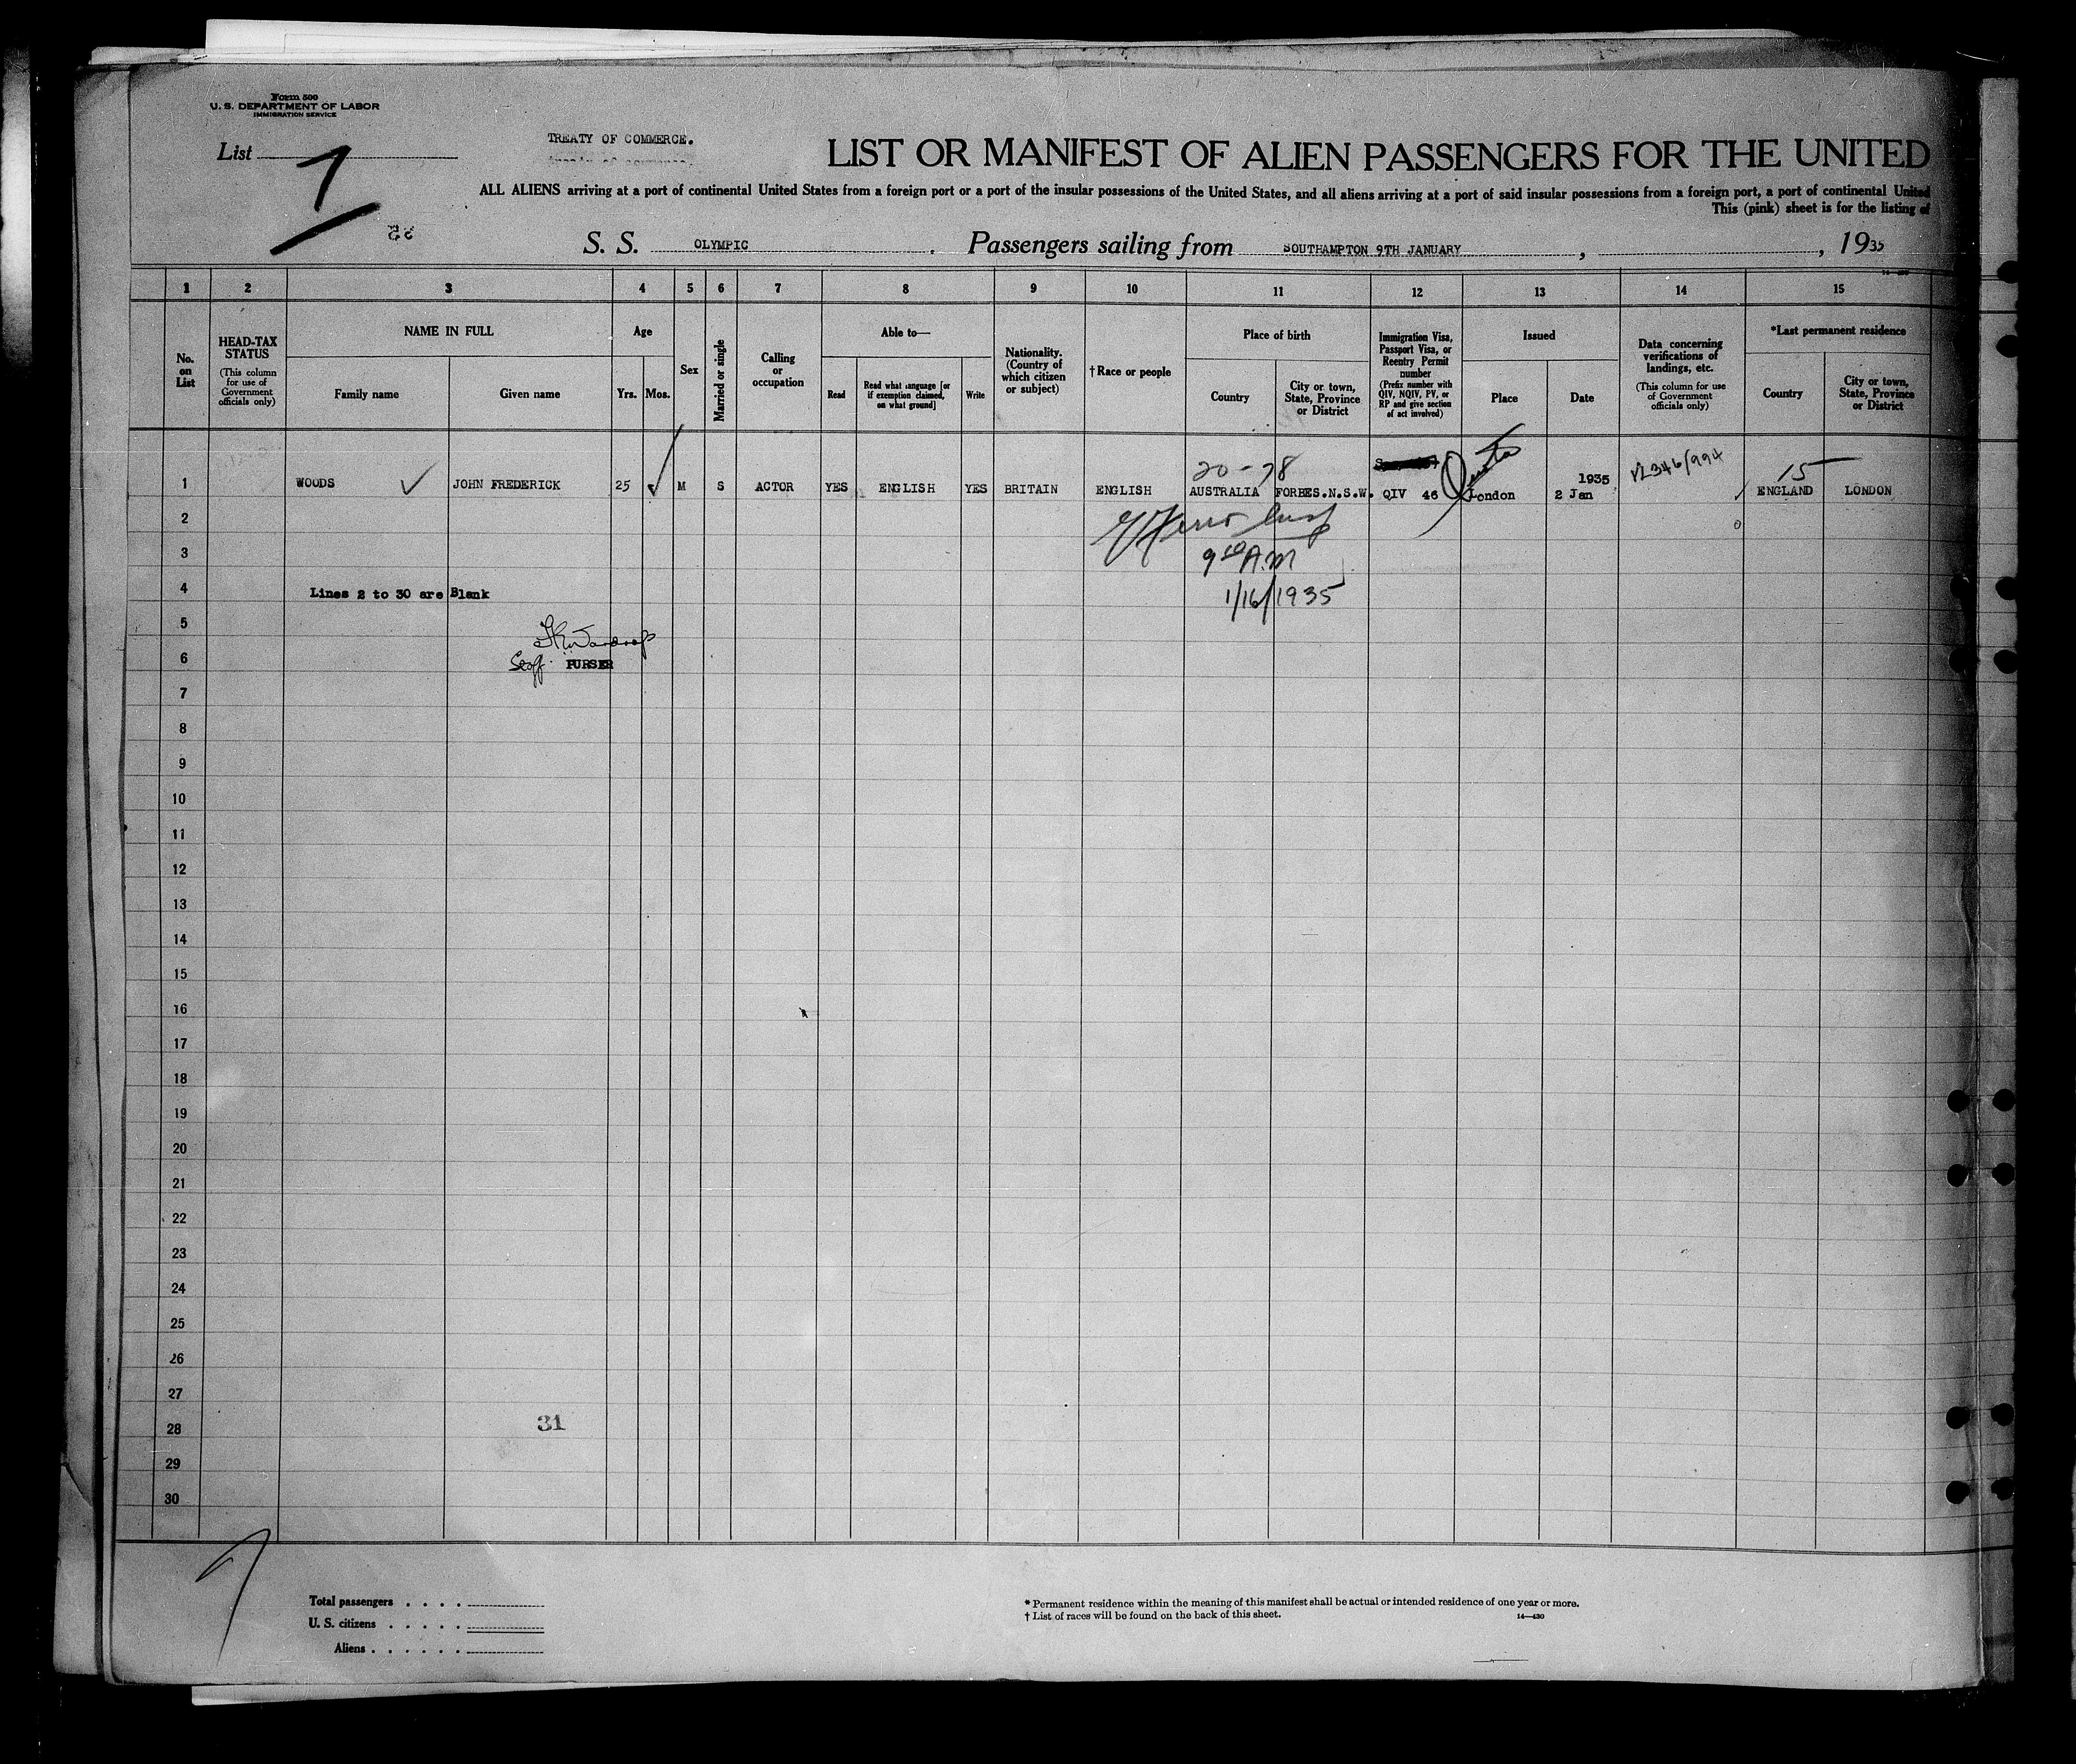 Form 500
U. S. DEPARTMENT OF LABOR
IMMIGRATION SERVICE
List 7
TREATY OF COMMERCE.
LIST OR MANIFEST OF ALIEN PASSENGERS FOR THE UNITED
ALL ALIENS arriving at a port of continental United States from a foreign port or a port of the insular possessions of the United States, and all aliens arriving at a port of said insular possessions from a foreign port, a port of continental United
This (pink) sheet is for the listing of
S. S. OLYMPIC . Passengers sailing from SOUTHAMPTON 9TH JANUARY , , 1935
1 2 3 4 5 6 7 8 9 10 11 12 13 14 15
No. on List
HEAD-TAX STATUS
(This column for use of Government officials only)
NAME IN FULL
Family name
Given name
Age
Yrs.
Mos.
Sex
Married or single
Calling or occupation
Able to—
Read
Read what language [or if exemption claimed, on what ground]
Write
Nationality. (Country of which citizen or subject)
†Race or people
Place of birth
Country
City or town, State, Province or District
Immigration Visa, Passport Visa, or Reentry Permit number
(Prefix number with QIV, NQIV, PV, or RP and give section of act involved)
Issued
Place
Date
Data concerning verifications of landings, etc.
(This column for use of Government officials only)
*Last permanent residence
Country
City or town, State, Province or District
20-78
Quota
1935
V2346/994
15
1 WOODS JOHN FREDERICK 25 M S ACTOR YES ENGLISH YES BRITAIN ENGLISH AUSTRALIA FORBES.N.S.W. QIV 46 London 2 Jan ENGLAND LONDON
2
3
9 A.M
4
Lines 2 to 30 are Blank
1/16/1935
5
6
PURSER
7
8
9
10
11
12
13
14
15
16
17
18
19
20
21
22
23
24
25
26
27
28
31
29
30
7
Total passengers . . . .
U. S. citizens . . . . .
Aliens . . . . . .
* Permanent residence within the meaning of this manifest shall be actual or intended residence of one year or more.
† List of races will be found on the back of this sheet.
14—430